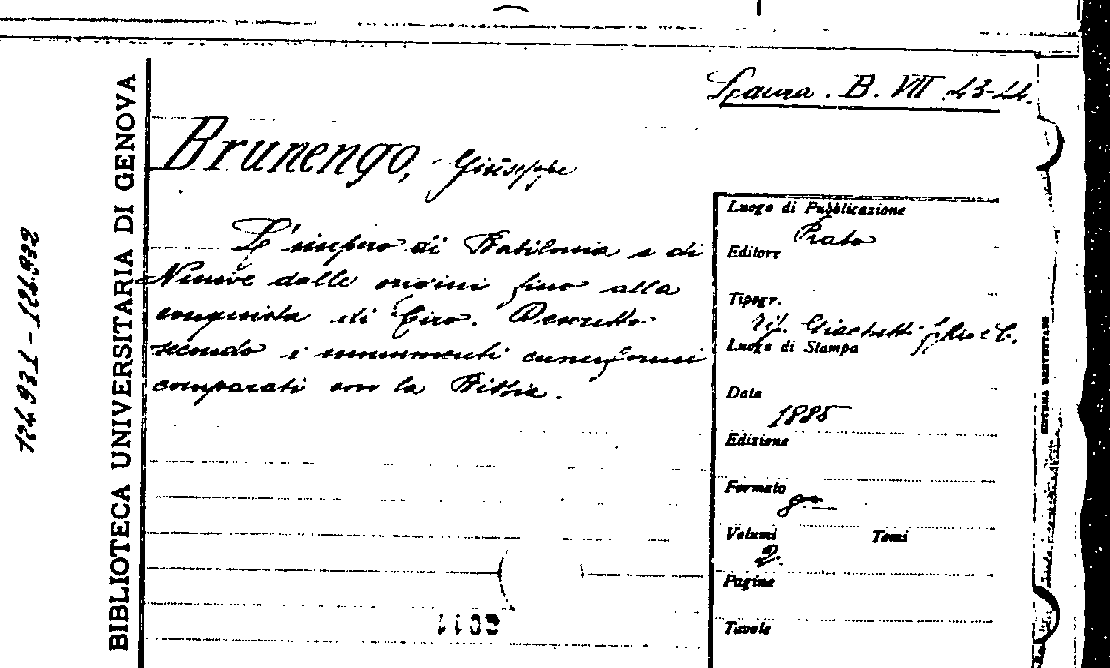 BIBLIOTECA UNIVERSITARIA DI GENOVA
Scansia. B. VII 43-44.
Brunengo, Giuseppe
L'impero di Babilonia e di
Ninive dalle origini fino alla
conquista di Ciro. Descritto
secondo i monumenti cuneiformi
comparati con la Bibbia.
Luogo di Pubblicazione
Prato
Editore
Tipogr.
Tip. Giachetti figlio e C.
Luogo di Stampa
Data
1885
Edizione
Formato
8º
Volumi
2.
Tomi
Pagine
Tavole